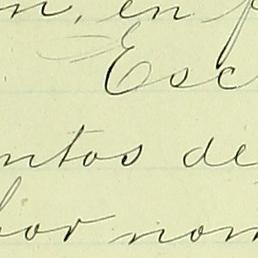 n, en f
Esc
ntos de
bor nom